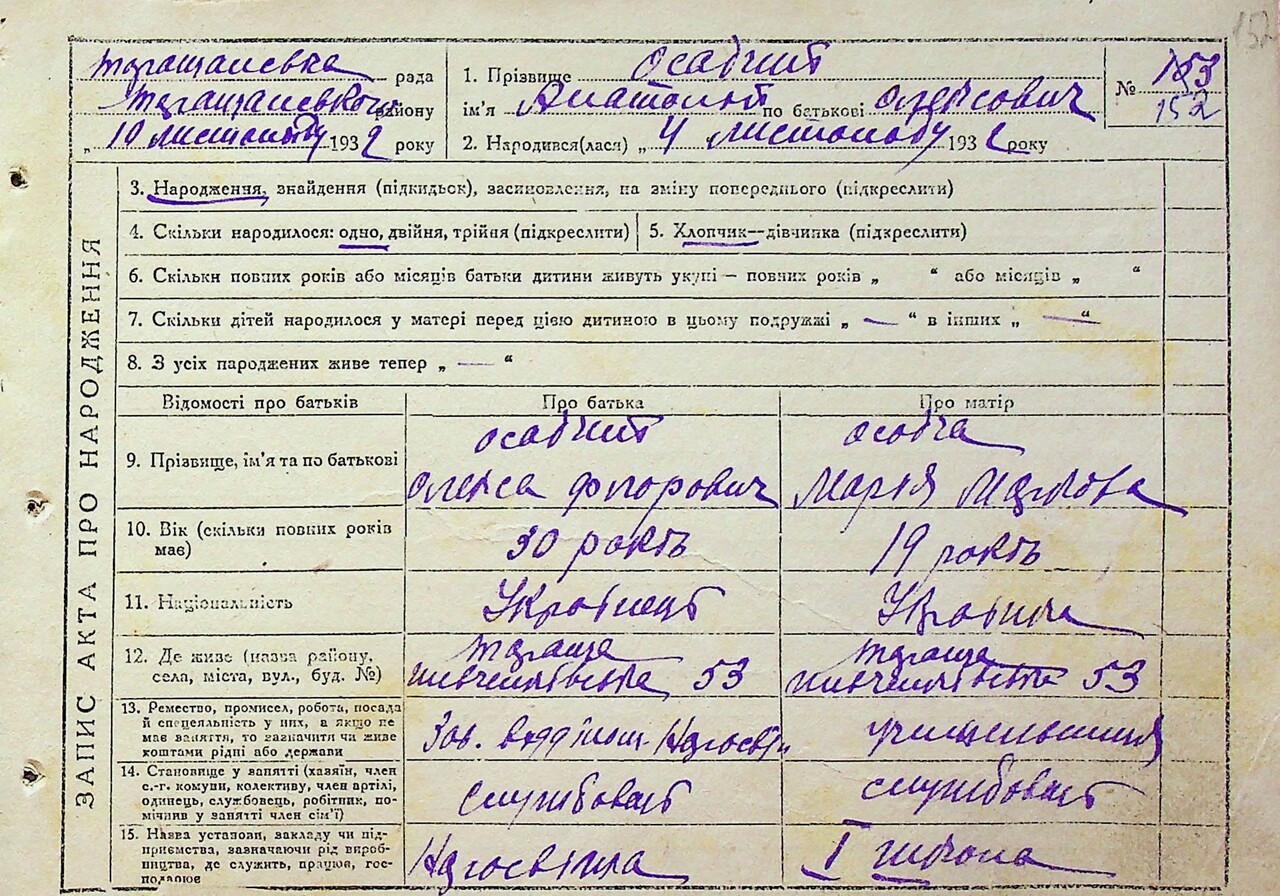 152
Таращанська рада
Таращанського району
„ 10 листопаду 1932 року
1. Прізвище Осадчий
ім'я Анатолій по батькові Олексович
2. Народився(лася) „ 4 листопаду 1932 року
№ 153
152
ЗАПИС АКТА ПРО НАРОДЖЕННЯ
3. Народження, знайдення (підкидьок), засиновлення, на зміну попереднього (підкреслити)
4. Скільки народилося: одно, двійня, трійня (підкреслити)
5. Хлопчик—дівчинка (підкреслити)
6. Скільки повних років або місяців батьки дитини живуть укупі — повних років „ “ або місяців „ “
7. Скільки дітей народилося у матері перед цією дитиною в цьому подружжі „ — “ в інших „ — “
8. З усіх народжених живе тепер „ — “
Відомості про батьків
Про батька
Про матір
9. Прізвище, ім'я та по батькові
Осадчий
Олекса Флорович
Осадча
Марія Маркова
10. Вік (скільки повних років
має)
30 років
19 років
11. Національність
Українець
Українка
12. Де живе (назва району,
села, міста, вул., буд. №)
Тараща
53
Тараща
53
13. Ремество, промисел, робота, посада
й спеціяльність у них, а якщо не
має заняття, то зазначити чи живе
коштами рідні або держави
Зав. відділом Наросвіти
учителька
14. Становище у занятті (хазяїн, член
с.-г. комуни, колективу, член артілі,
одинець, службовець, робітник, по-
мічник у занятті член сім'ї)
службовець
службовець
15. Назва установи, закладу чи під-
приємства, зазначаючи рід вироб-
ництва, де служить, працює, гос-
подарює
Наросвіта
I школа